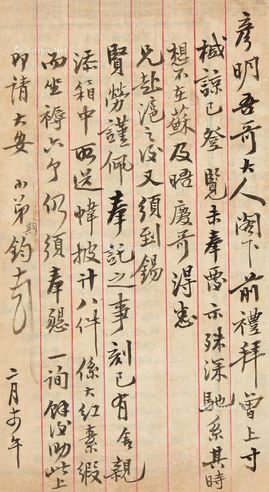 彦明吾哥大人阁下前禮拜曾上寸
椷諒已登覽未奉覆示殊深馳系其時
想不在蘇及晤慶哥得悉
兄赴滬之後又須到錫
賢勞謹佩奉託之事刻已有舍親
添箱中所送幃披计八件係大紅素緞
而坐褥六个仍須奉懇一詢餘後助此上
即請大安 小弟鈞
二月 午